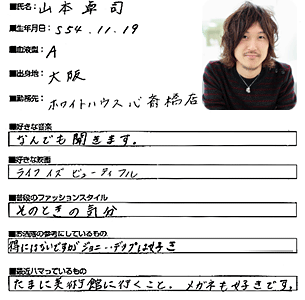 ■氏名：山本卓司
■生年月日：S54.11.19
■血液型：A
■出身地：大阪
■勤務先：ホワイトハウス心斎橋店
■好きな音楽
なんでも聞きます。
■好きな映画
ライフ イズ ビューティフル
■普段のファッションスタイル
そのときの気分
■お洒落の参考にしているもの
得にはないですがジョニー・デップは好き
■最近ハマっているもの
たまに美術館に行くこと。メガネも好きです。